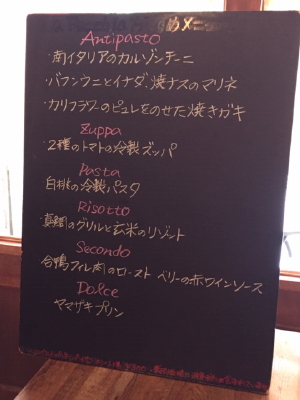 めメニュー
Antipasto
・南イタリアのカルゾンチーニ
・バフンウニとイナダ、焼ナスのマリネ
・カリフラワーのピュレをのせた焼きガキ
Zuppa
・2種のトマトの冷製ズッパ
Pasta
白桃の冷製パスタ
Risotto
・真鯛のグリルと玄米のリゾット
Secondo
合鴨フィレ肉のロースト ベリーの赤ワインソース
Dolce
ヤマザキプリン